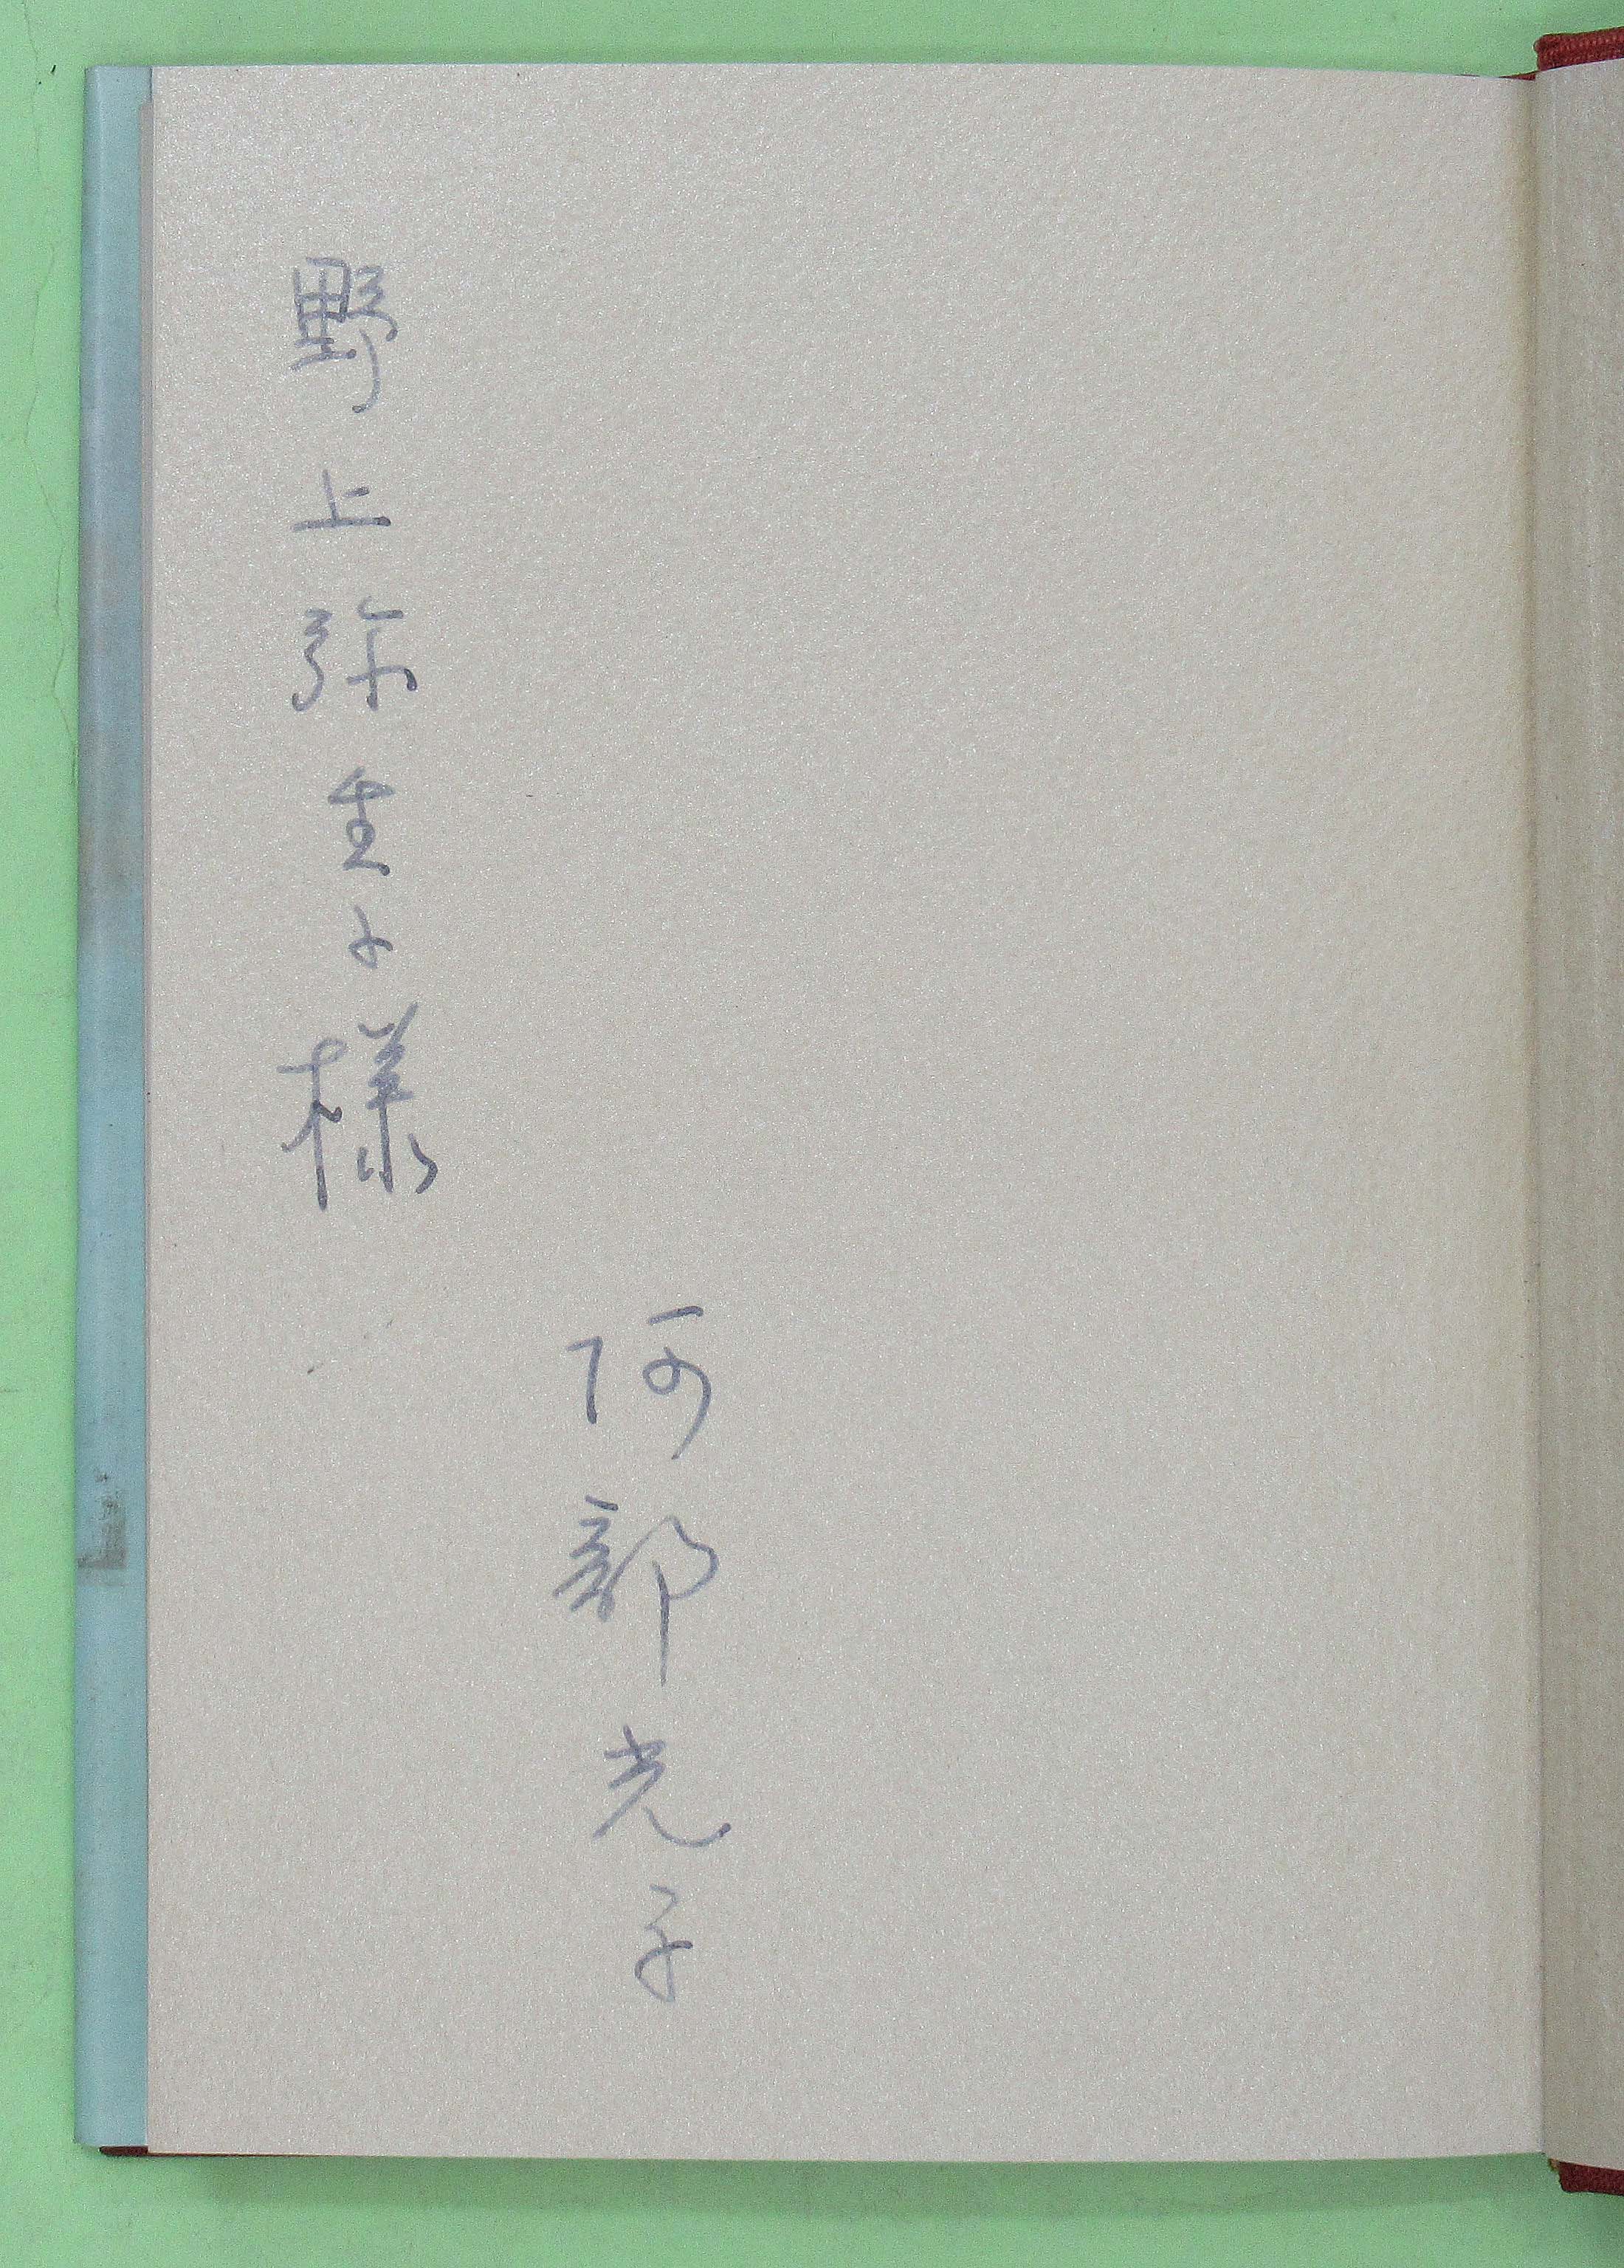 野上弥生子様
阿部光子